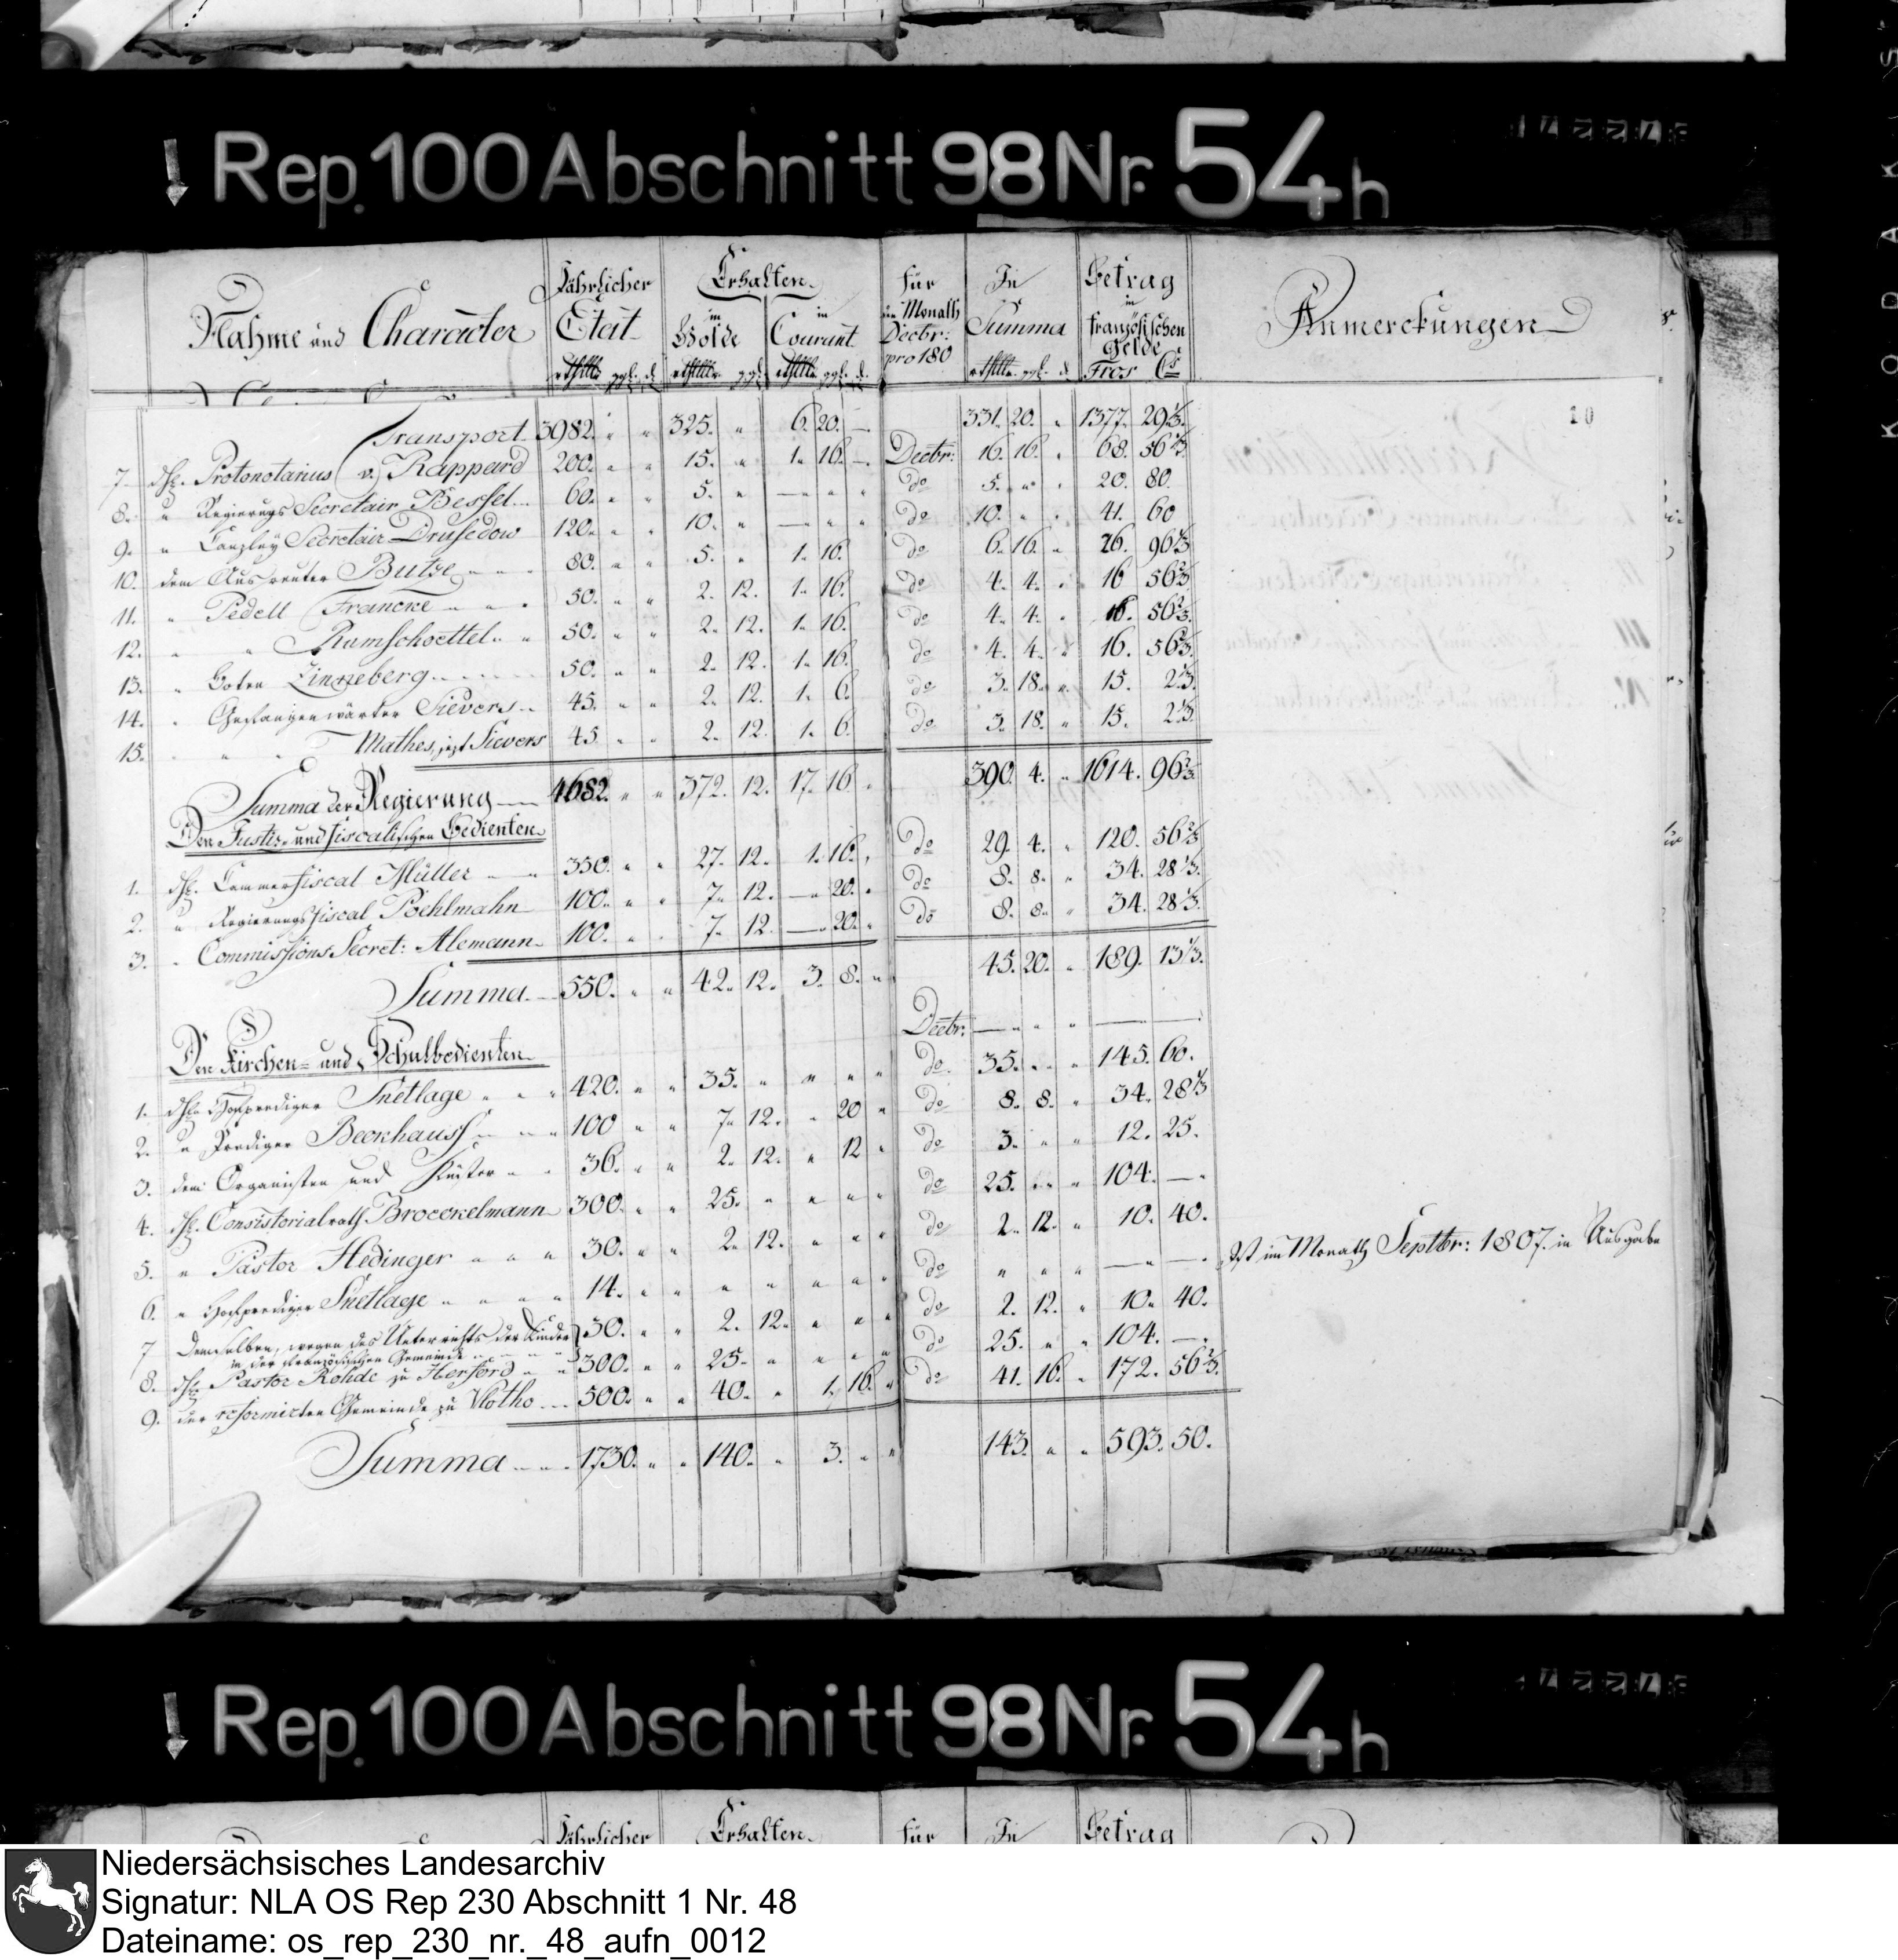 Rep. 100 Abschnitt 98 Nr. 54 h
Nahme und Character Jährlicher Etat Erhalten in Golde in Courant für den Monath Decbr: pro 180 In Summa Betrag in französischen Gelde Anmerckungen
rthlr ggl. d. rthlr ggl. rthlr ggl. d. rthlr ggl. d. Frcs Cs
10
Transport 3982. " " 325. " 6. 20. — 331. 20. " 1377. 29 1/3.
7. dH. Protonotarius v. Rappard 200. " " 15. " 1. 16. — Decbr: 16. 16. " 68. 56 2/3
8. " Regierungs Secretair Bessel 60. " " 5. " — " " do 5. " " 20. 80.
9. " Canzley Secretair Drusedow 120. " " 10. " — " " do 10. " " 41. 60
10. dem Ausreuter Butze 80. " " 5. " 1. 16. do 6. 16. " 26. 96 2/3
11. " Pedell Francke 50. " " 2. 12. 1. 16. do 4. 4. " 16 56 2/3
12. " " Ramschoettel 50. " " 2. 12. 1. 16. do 4. 4. " 16. 56 2/3
13. " Boten Zinneberg 50. " " 2. 12. 1. 16. do 4. 4. " 16. 56 2/3
14. " Gefangenwärter Sievers 45. " " 2. 12. 1. 6. do 3. 18. " 15. 2 1/3.
15. " " Mathes, jezt Sievers 45 " " 2. 12. 1. 6. do 3. 18. " 15. 2 1/3.
Summa der Regierung 4682. " " 372. 12. 17. 16. " 390. 4. " 1614. 96 2/3
Den Justiz- und fiscalischen Bedienten
1. dH. Cammerfiscal Müller 350. " " 27. 12. 1. 16. " do 29. 4. " 120. 56 2/3
2. " Regierungsfiscal Poehlmahn 100. " " 7. 12. — 20. " do 8. 8. " 34. 28 1/3.
3. " Commissions Secret: Alemann 100. " " 7. 12. — 20. " do 8. 8. " 34. 28 1/3.
Summa 550. " " 42. 12. 3. 8. " 45. 20. " 189. 13 1/3.
Den Kirchen- und Schulbedienten Decbr: — " " — —
1. dH. Hofprediger Snetlage 420. " " 35. " " " " do 35. " " 145. 60.
2. " Prediger Beckhauss 100 " " 7. 12. " 20 " do 8. 8. " 34. 28 1/3
3. dem Organisten und Küster 36. " " 2. 12. " 12 " do 3. " " 12. 25.
4. dH. Consistorialrath Broeckelmann 300. " " 25. " " " " do 25. " " 104. —
5. " Pastor Hedinger 30. " " 2. 12. " " " do 2. 12. " 10. 40.
6. " Hofprediger Snetlage 14. " " " " " " " do " " " — " — Ist im Monath Septbr: 1807. in Ausgabe
7 Demselben, wegen des Unterrichts der Kinder
in der französischen Gemeinde 30. " " 2. 12. " " " do 2. 12. " 10. 40.
8. dH. Pastor Rohde zu Herford 300. " " 25. " " " " do 25. " " 104. —
9. der reformirten Gemeinde zu Vlotho 500. " " 40. " 1. 16. " do 41. 16. " 172. 56 2/3.
Summa 1730. " " 140. " 3. " " 143. " " 593. 50.
Rep. 100 Abschnitt 98 Nr. 54 h
Jährlicher Erhalten für In Betrag
Niedersächsisches Landesarchiv
Signatur: NLA OS Rep 230 Abschnitt 1 Nr. 48
Dateiname: os_rep_230_nr._48_aufn_0012
KODAK S